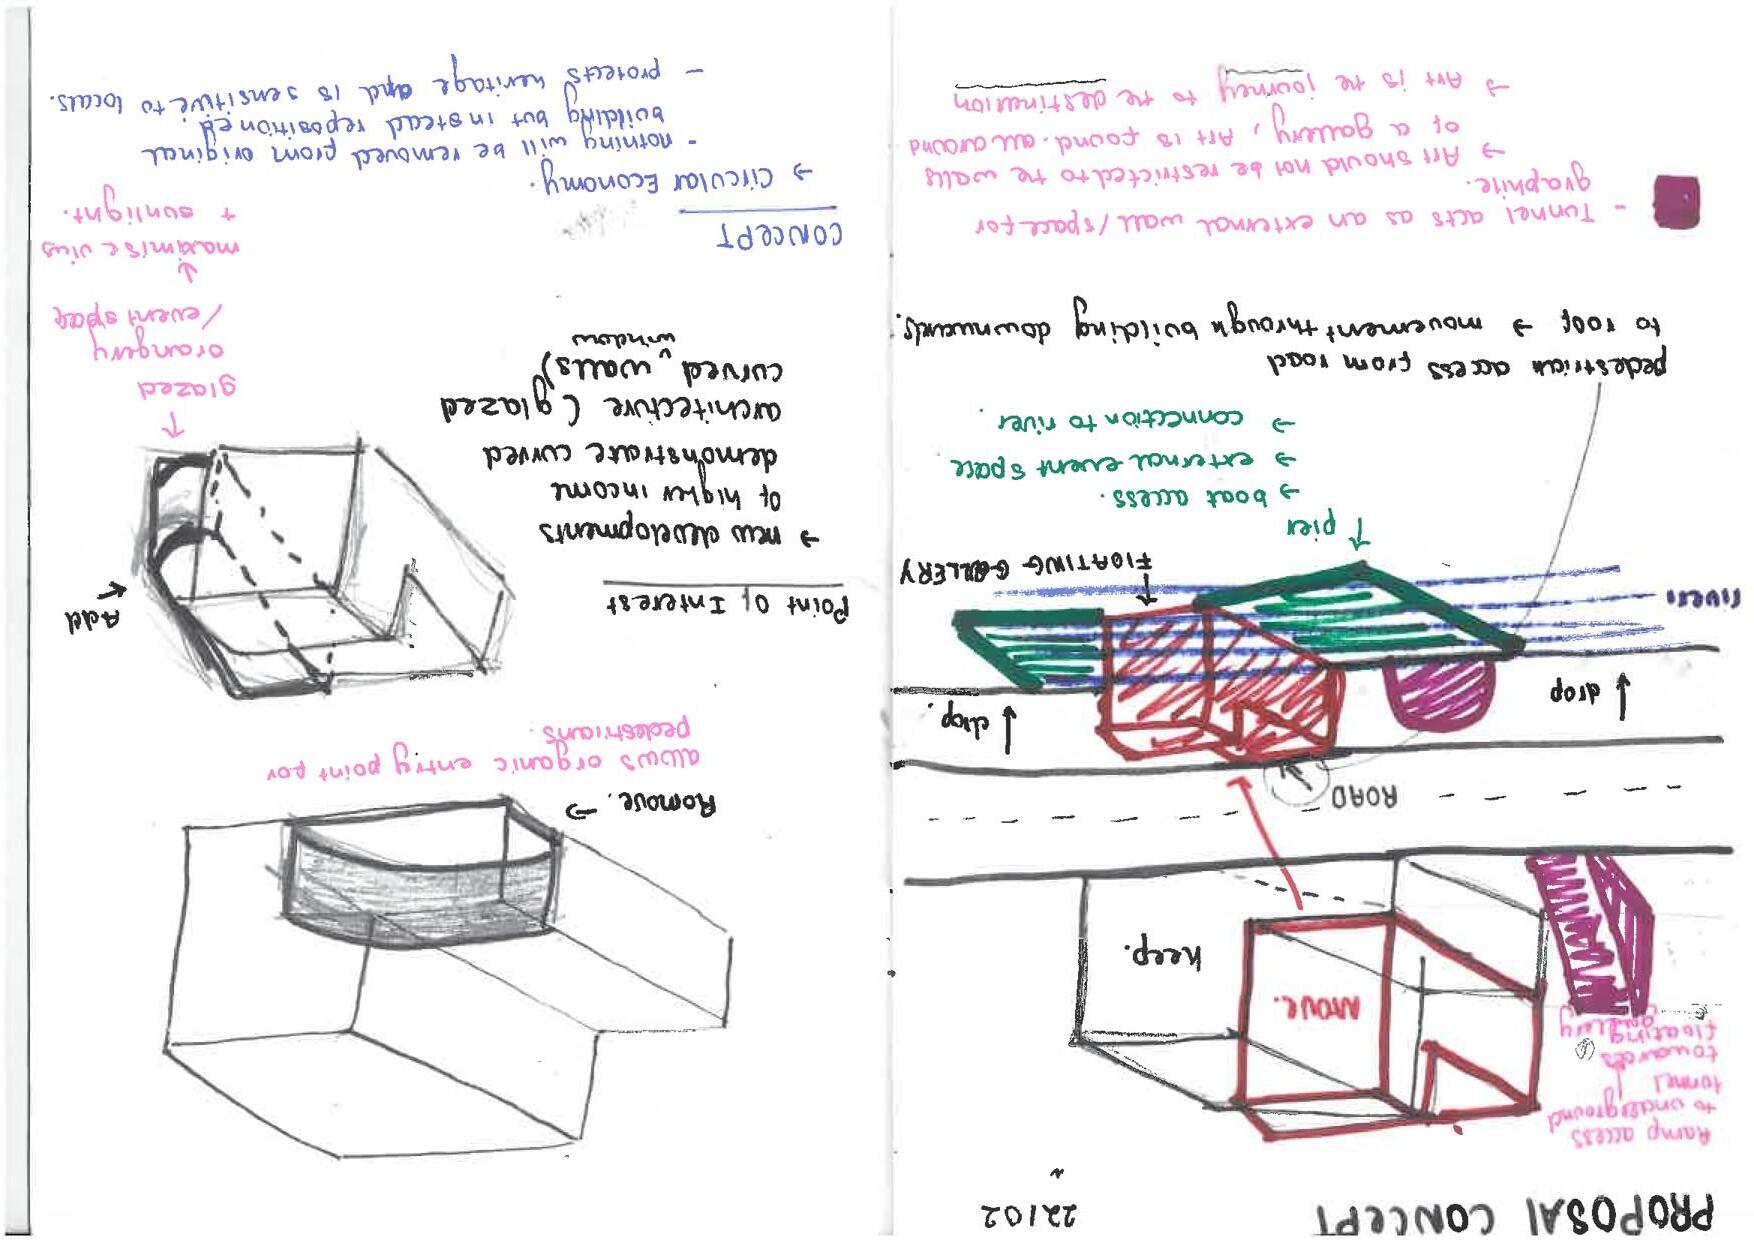 PROPOSAl CONCEPT
22/02
Ramp access
to underground
tunnel
towards
floating
gallery
Move.
keep.
ROAD
drop
drop.
river
FlOATING GALLERY
pier
→ boat access.
→ external event space
→ connection to river.
pedestrian access from road
to roof → movement through building downwards.
- Tunnel acts as an external wall/space for
graphite.
→ Art should not be restricted to the walls
of a gallery, Art is found all around
→ Art is the journey to the destination
Romove. →
allows organic entry point for
pedestrians.
Add
glazed
orangery
/event space
maximise vius
+ sunlight.
Point Of Interest
→ new developments
of higher income
demonstrate curved
architecture (glazed
curved walls)
window
CONCEPT
→ Circular Economy.
- nothing will be removed from original
building but instead repositioned
- protects heritage and is sensitive to locals.